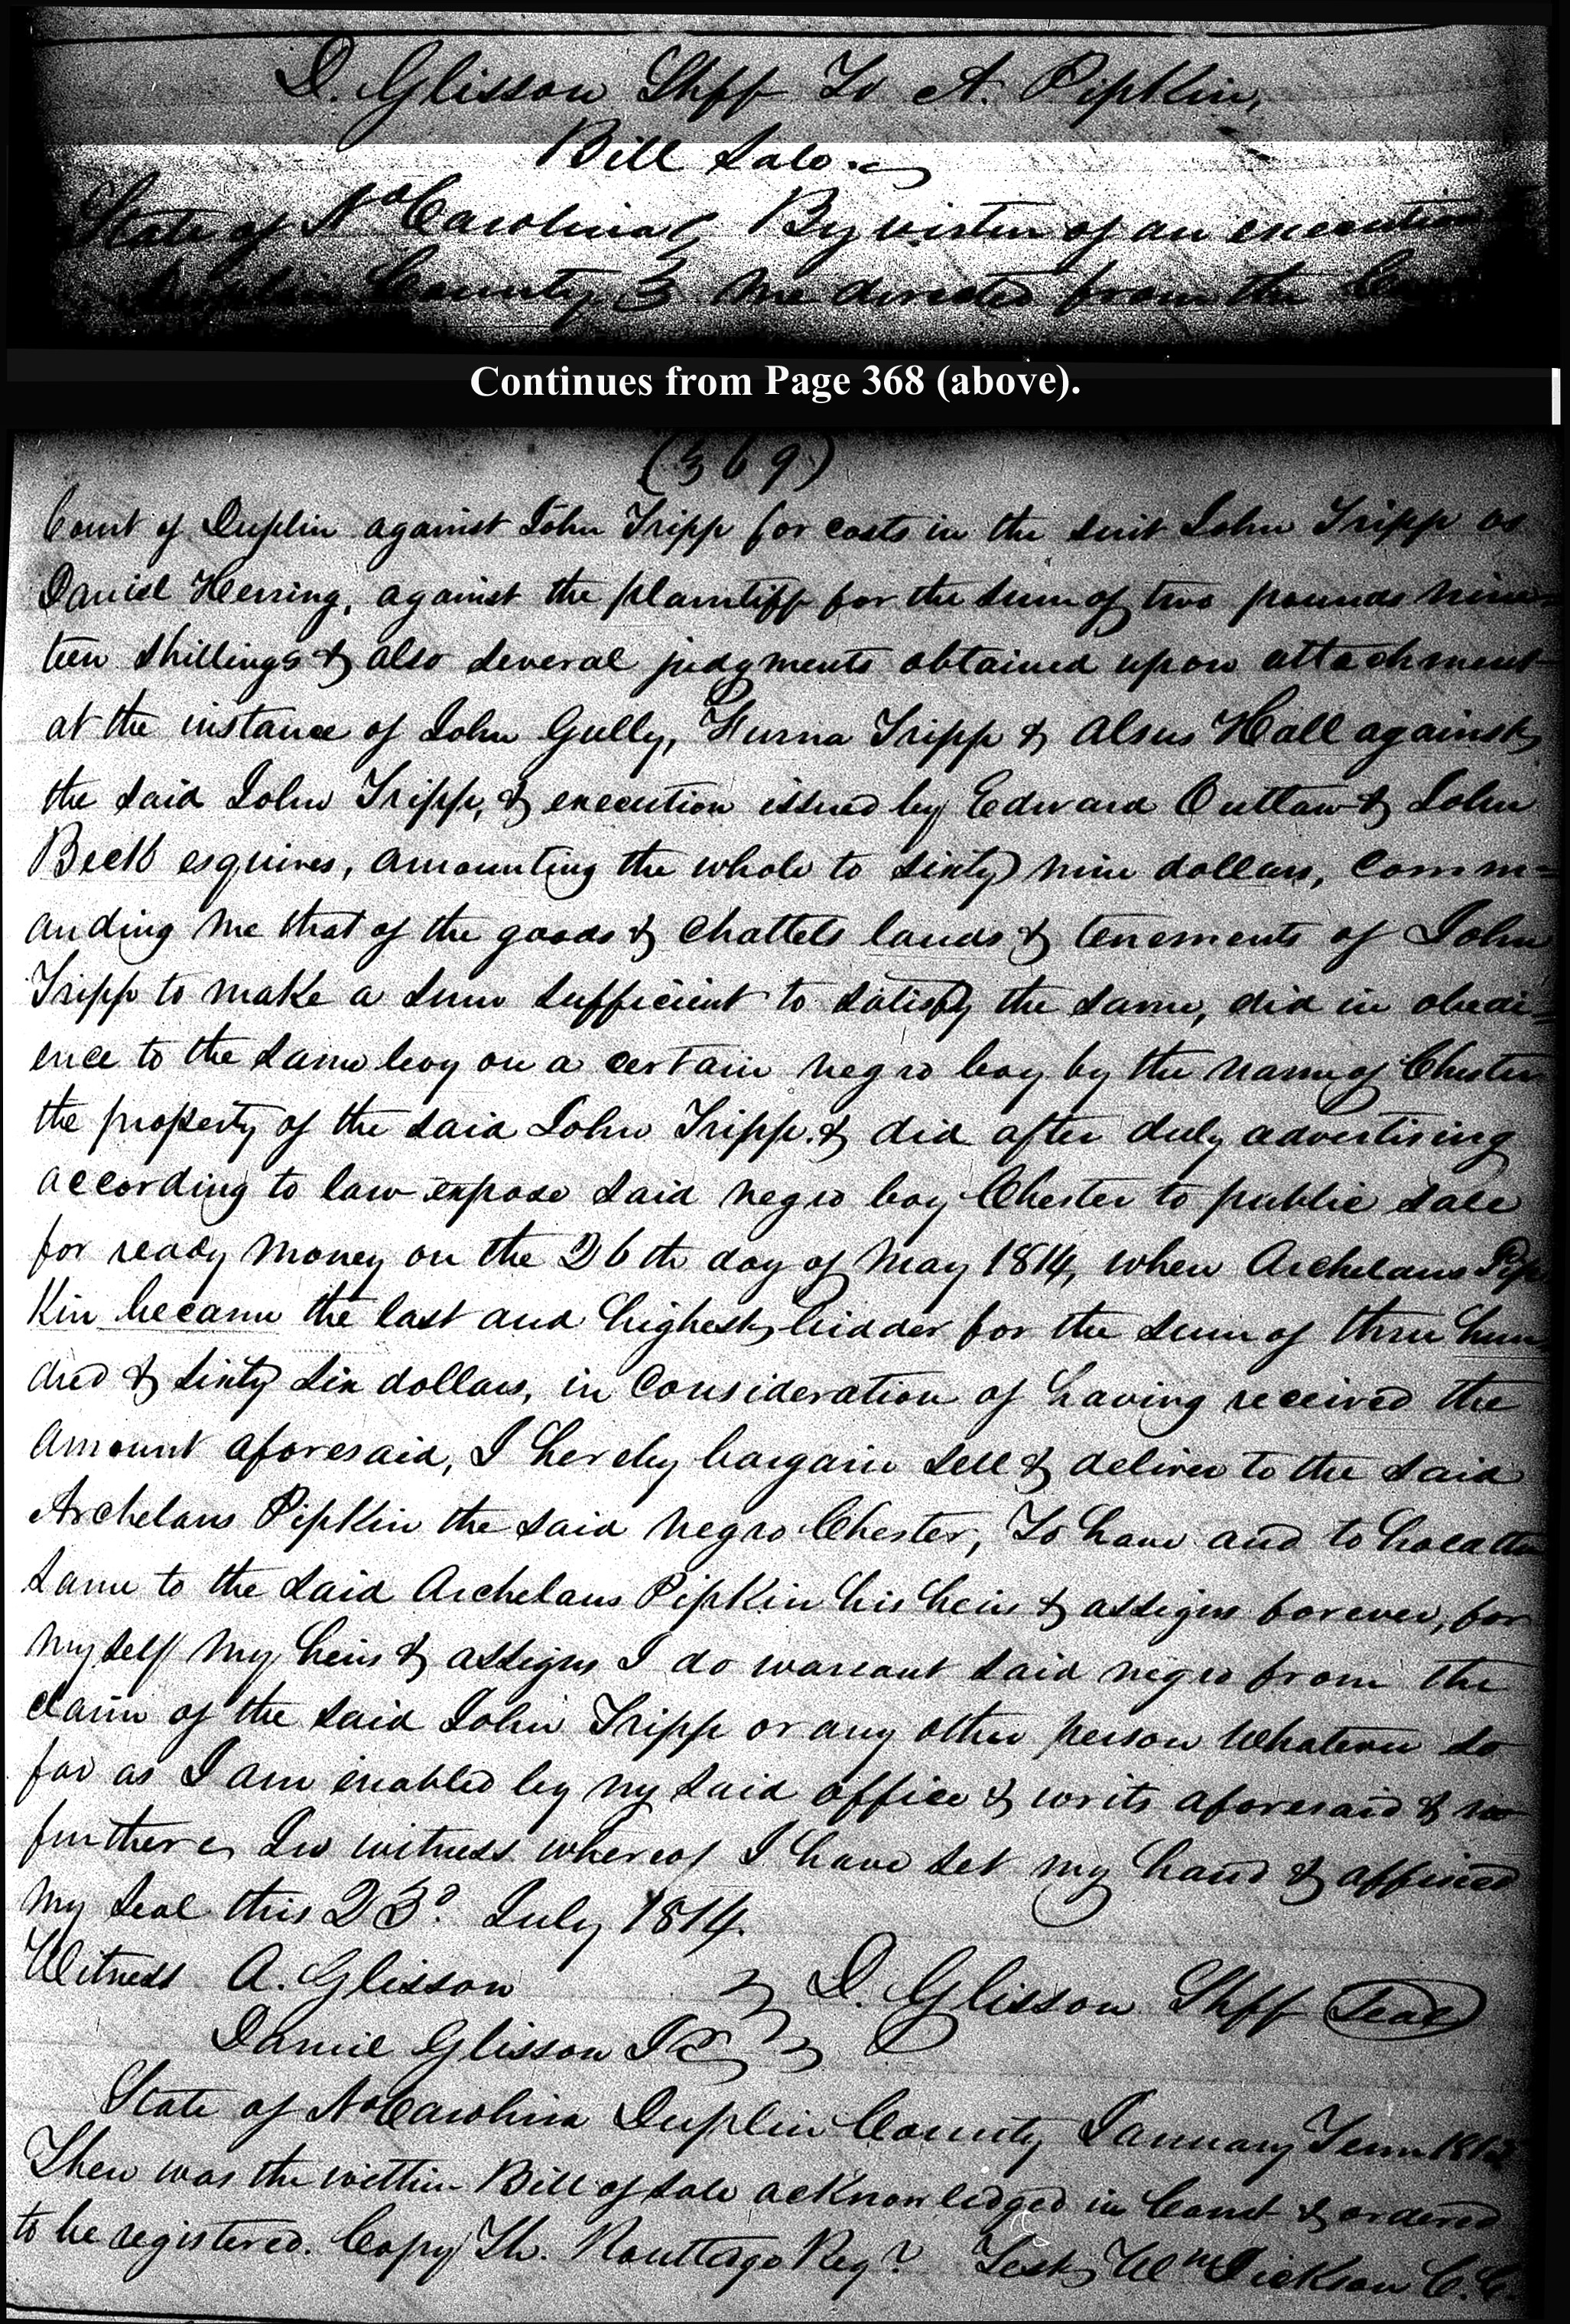 D. Glisson Shff To A. Pipkin,
Bill Sale.
State of No Carolina } By virtu of an execution
Duplin County } me directed from the
Continues from Page 368 (above).
(369)
Court of Duplin against John Tripp for costs in the suit John Tripp vs
Daniel Herring, against the plaintiff for the sum of two pounds nine-
teen shillings & also several judgments obtained upon attachment
at the instance of John Gully, Tripp & Alsus Hall against
the said John Tripp, & execution issued by Edward Outlaw & John
Beck esquires, amounting the whole to sixty nine dollars, comm=
anding me that of the goods & chattels lands & tenements of John
Tripp to make a sum sufficient to satisfy the same, did in obedi=
ence to the same levy on a certain negro boy by the name of Chester
the property of the said John Tripp & did after duly advertising
according to law expose said negro boy Chester to public sale
for ready money on the 26th day of May 1814, when Archelaus Pip
kin became the last and highest bidder for the sum of three hun
dred & sixty six dollars, in consideration of having received the
amount aforesaid, I hereby bargain sell & deliver to the said
Archelaus Pipkin the said negro Chester, To have and to hold the
same to the said Archelaus Pipkin his heirs & assigns forever, for
myself my heirs & assigns I do warrant said negro from the
claim of the said John Tripp or any other person whatever so
far as I am enabled by my said office & writs aforesaid & no
further In witness whereof I have set my hand & affixed
my seal this 23d. July 1814.
Witness A. Glisson } D. Glisson Shff Seal
Daniel Glisson Jr }
State of No Carolina Duplin County January Term
Then was the within Bill of sale acknowledged in Court & ordered
to be registered. Copy Th. Routledge Regr Test Wm Dickson C.C.